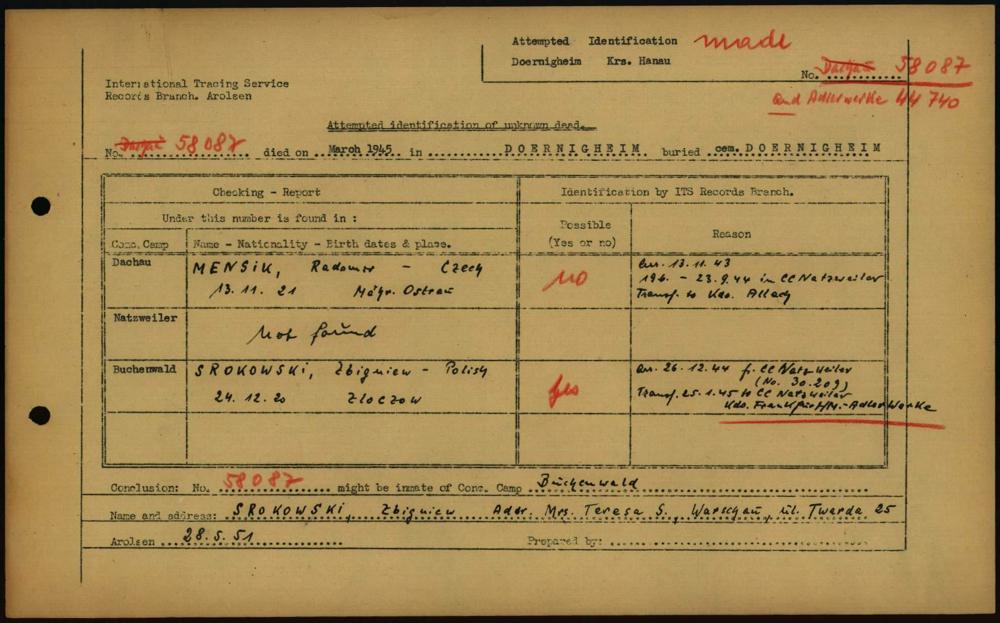 Attempted Identification made
Doernigheim Krs. Hanau
No. Dachau 58087
and Adlerwerke 44740
International Tracing Service
Records Branch. Arolsen
Attempted identification of unknown dead.
No. Dachau 58087 died on March 1945 in DOERNIGHEIM buried cem. DOERNIGHEIM
Checking - Report
Identification by ITS Records Branch.
Under this number is found in :
Possible
(Yes or no)
Reason
Conc. Camp
Name - Nationality - Birth dates & place.
Dachau
MENSIK, Radomir - Czech
13.11.21 Mähr. Ostrau
no
arr. 13.11.43
19.6. - 23.9.44 in CC Natzweiler
Transf. to Kdo. Allach
Natzweiler
Not found
Buchenwald
SROKOWSKI, Zbigniew - Polish
24.12.20 Zloczow
yes
arr. 26.12.44 f. CC Natzweiler
(No. 30.209)
Transf. 25.1.45 to CC Natzweiler
Kdo. Frankfurt/M.-Adler Werke
Conclusion: No. 58087 might be inmate of Conc. Camp Buchenwald
Name and address: SROKOWSKI, Zbigniew Adr. Mrs. Teresa S., Warschau, ul. Twarda 25
Arolsen 28.5.51 Prepared by: